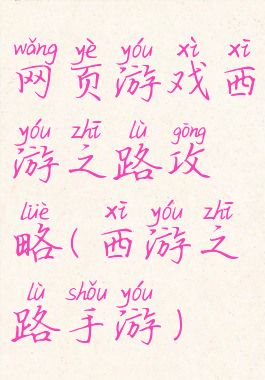 wǎng yè yóu xì xī
网页游戏西
yóu zhī lù gōng
游之路攻
lüè xī yóu zhī
略(西游之
lù shǒu yóu
路手游)